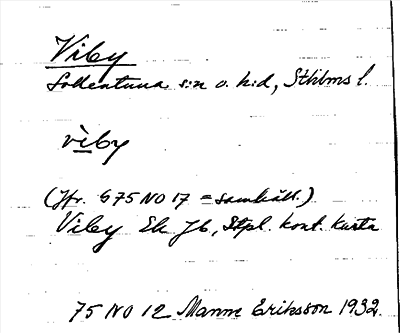 Viby
Sollentuna s:n o. h:d, Sthlms l.
vìby
(Jfr. 675 NO 17 = samhäll.)
Viby Ek Jb, Stpl. kont. karta
75 NO 12 Manne Eriksson 1932.